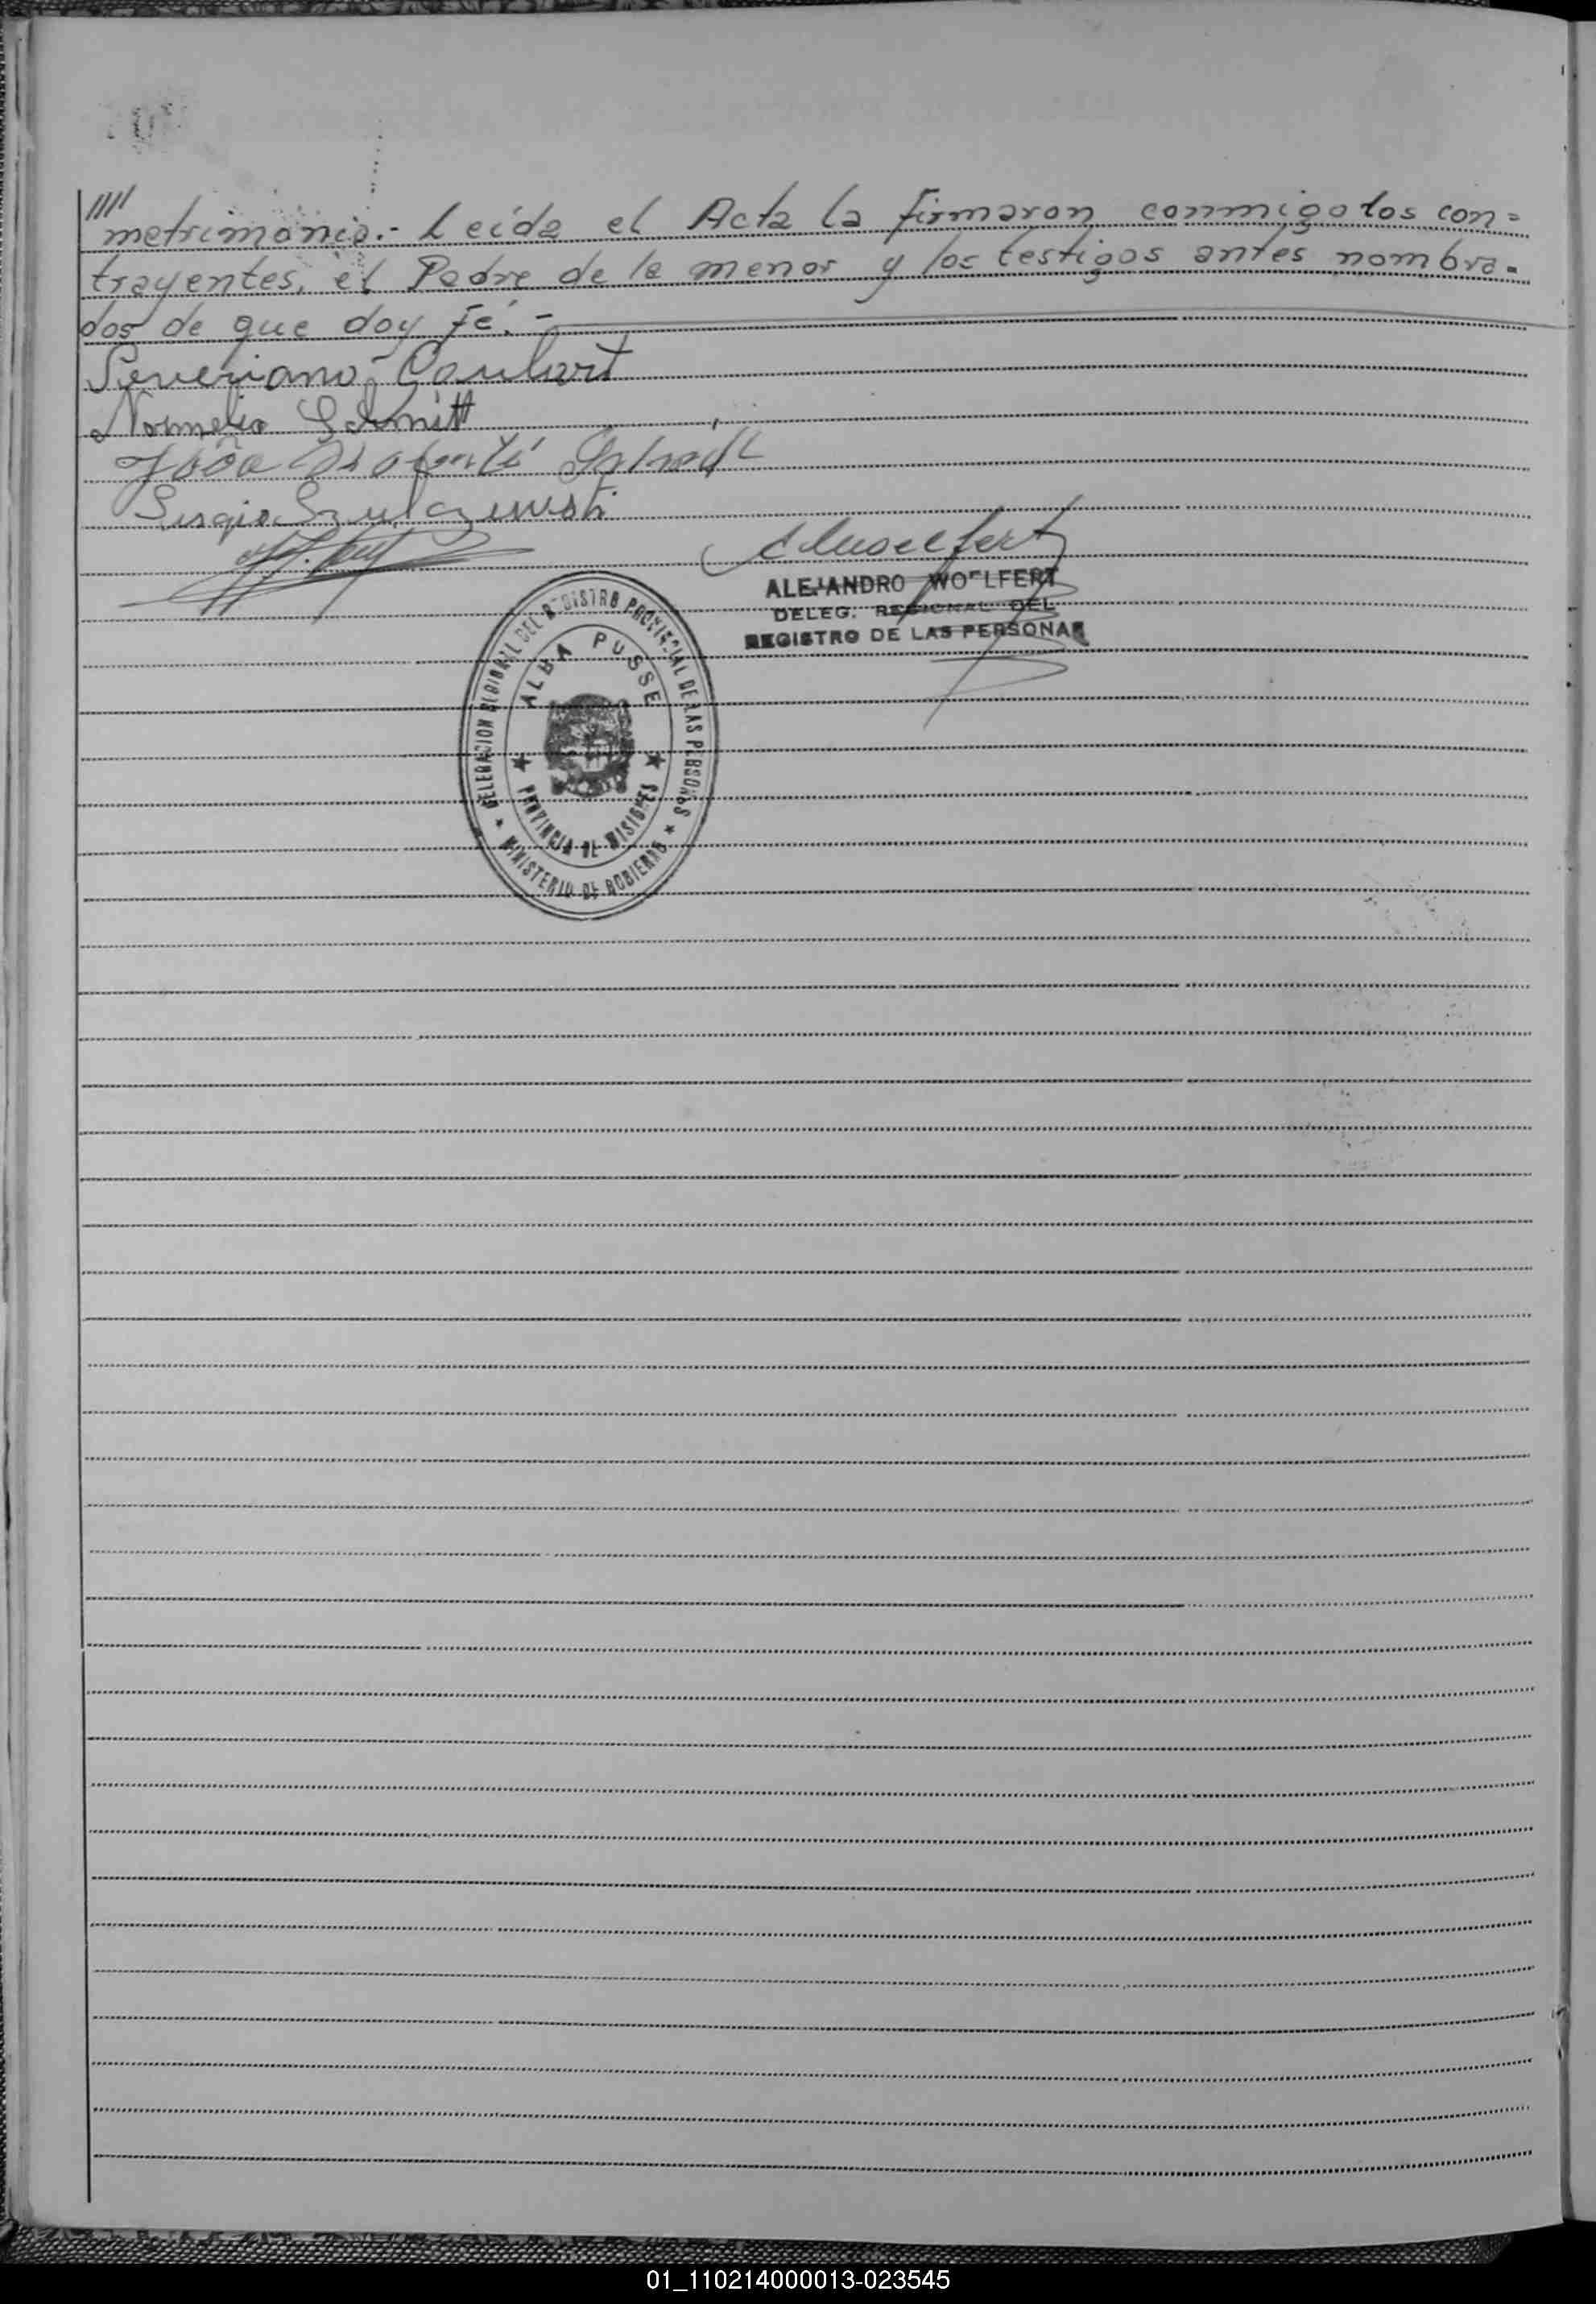 ////
matrimonio.- Leída el Acta la firmaron conmigo los con=
trayentes, el Padre de la menor y los testigos antes nombra=
dos de que doy fé.-
Severiano Goulart
Normelio Schmitt
João
Sergio Szulczewski
ALEJANDRO WOELFERT
DELEG. REGIONAL DEL
REGISTRO DE LAS PERSONAS
DELEGACION REGIONAL DEL REGISTRO PROVINCIAL DE LAS PERSONAS
ALBA POSSE
PROVINCIA DE MISIONES
MINISTERIO DE GOBIERNO
01_110214000013-023545